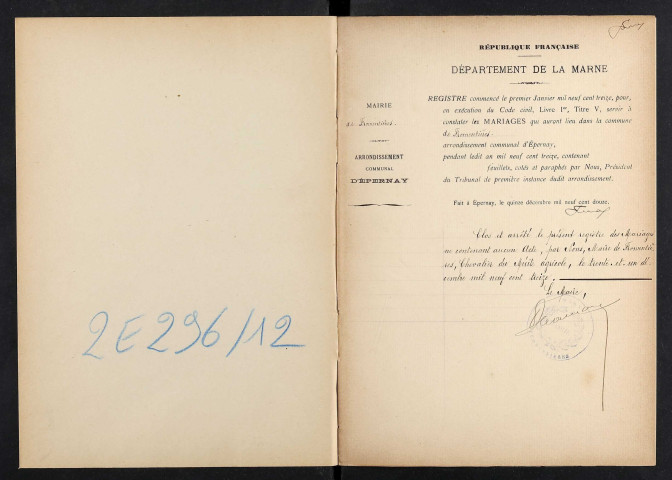 2E296/12
RÉPUBLIQUE FRANÇAISE
DÉPARTEMENT DE LA MARNE
MAIRIE
de
ARRONDISSEMENT
COMMUNAL
D'ÉPERNAY
REGISTRE commencé le premier Janvier mil neuf cent treize, pour,
en exécution du Code civil, Livre Ier, Titre V, servir à
constater les MARIAGES qui auront lieu dans la commune
de
arrondissement communal d'Épernay,
pendant ledit an mil neuf cent treize, contenant
feuillets, cotés et paraphés par Nous, Président
du Tribunal de première instance dudit arrondissement.
Fait à Épernay, le quinze décembre mil neuf cent douze.
Clos et arrêté le présent registre des Mariages
ne contenant aucun Acte, par Nous, Maire de
Chevalier du Mérite Agricole, le trente-et-un dé-
cembre mil neuf cent treize.
Le Maire,